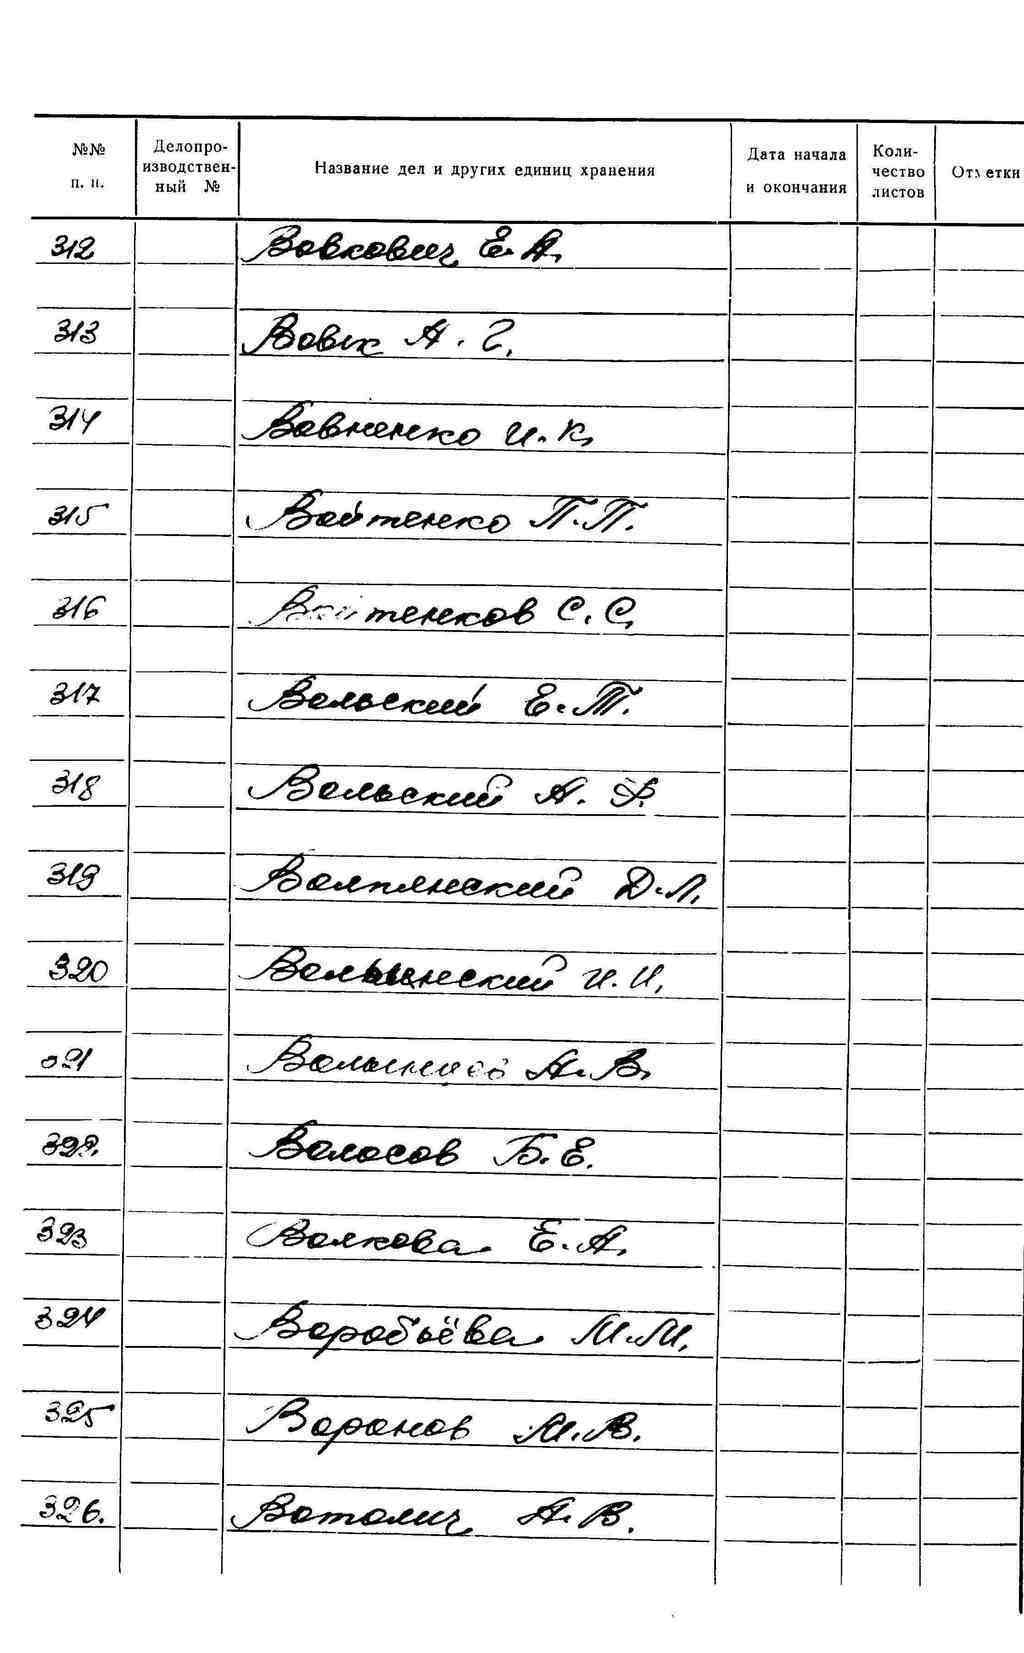 №№ п. п. Делопро-изводствен-ный № Название дел и других единиц хранения Дата начала и окончания Коли-чество листов Отметки
312 Вовкович Е. А.
313 Вовк А. Г.
314 Вовненко И. К.
315 Войтенко П. П.
316 Войтенков С. С.
317 Вольский Е. Т.
318 Вольский А. Ф.
319 Волпянский Д. Л.
320 Волынский И. И.
321 Волынцев А. В.
322. Волосов Б. Е.
323 Волкова Е. А.
324 Воробьёва М. М.
325 Воронов М. В.
326. Ватолич А. В.